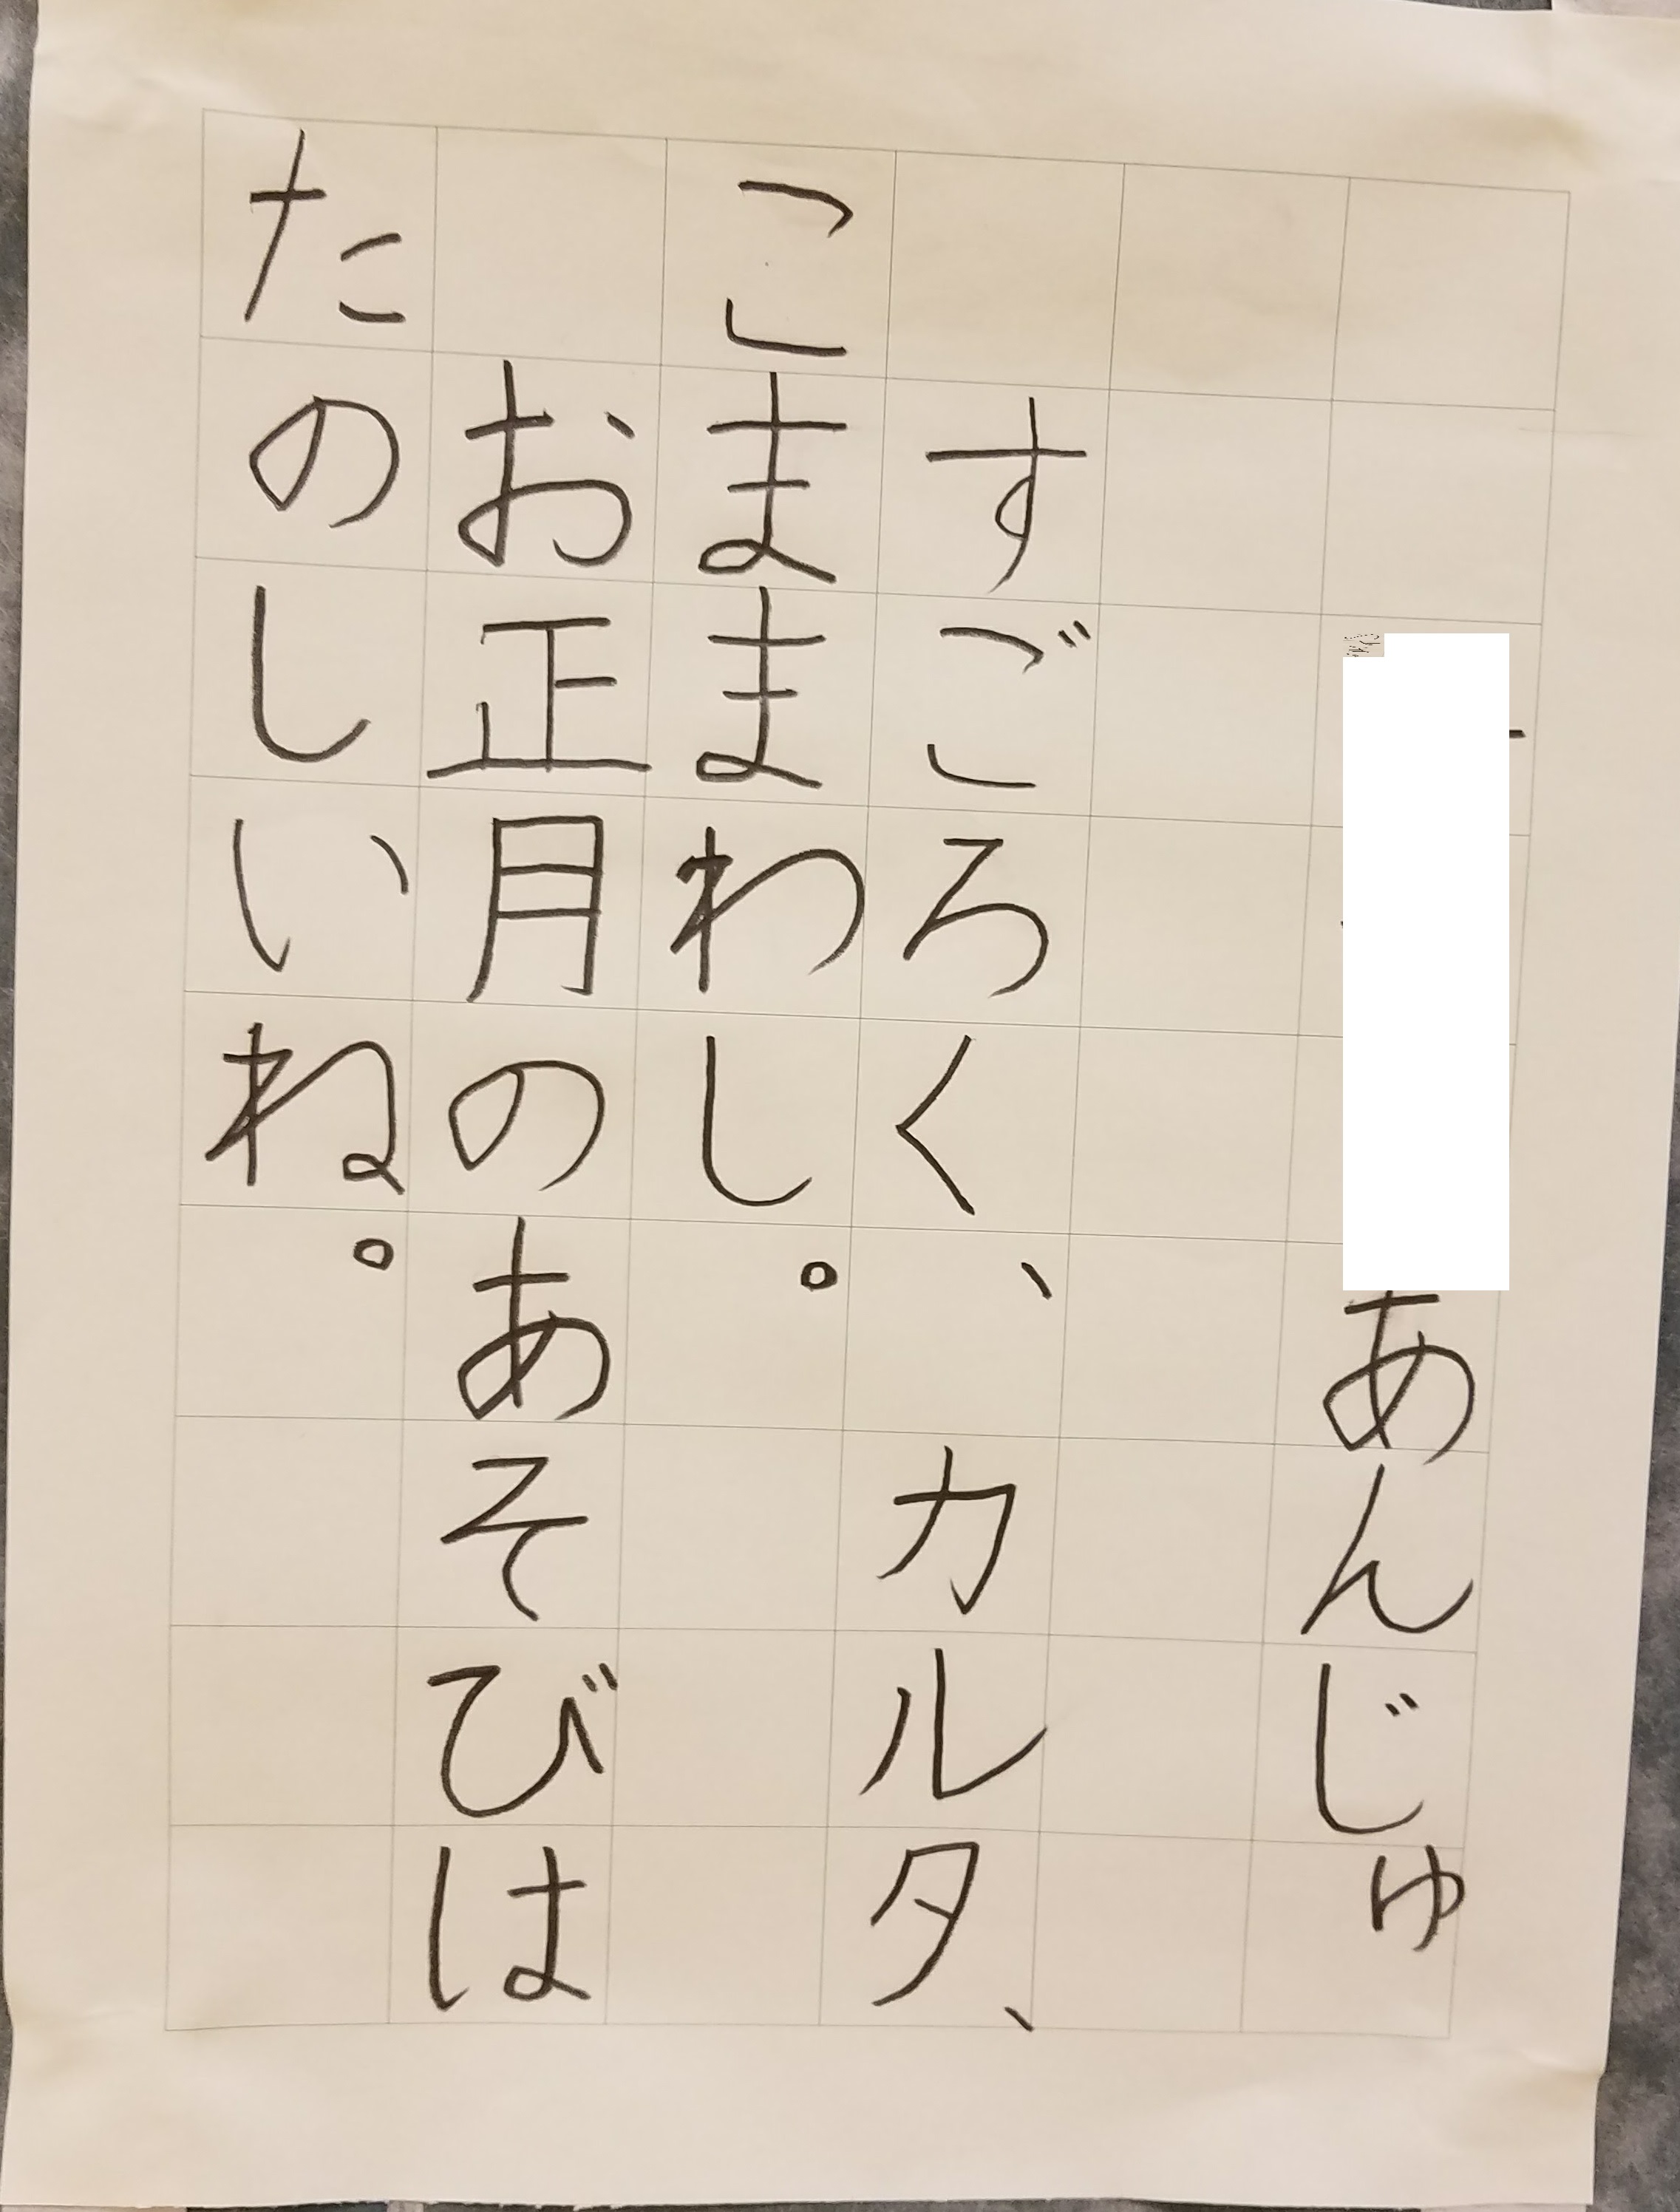 あんじゅ
すごろく、カルタ、
こままわし。
お正月のあそびは
たのしいね。